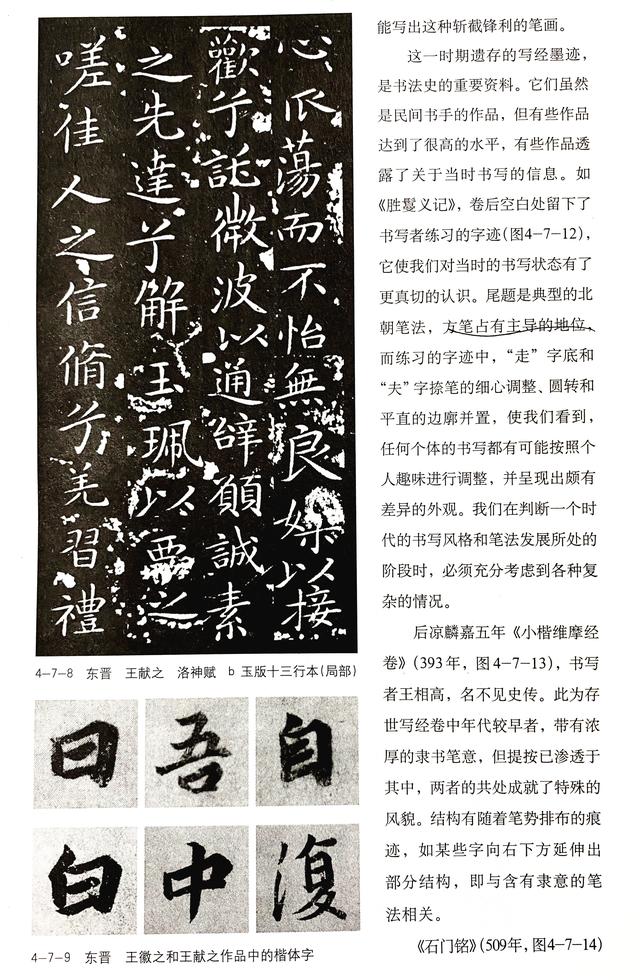 心蕩而不怡無良媒以接
歡兮託微波以通辭願誠素
之先達兮解玉珮以要之
嗟佳人之信脩兮羌習禮
4-7-8 东晋 王献之 洛神赋 b 玉版十三行本(局部)
曰 吾 自
白 中 復
4-7-9 东晋 王徽之和王献之作品中的楷体字
能写出这种斩截锋利的笔画。
这一时期遗存的写经墨迹，
是书法史的重要资料。它们虽然
是民间书手的作品，但有些作品
达到了很高的水平，有些作品透
露了关于当时书写的信息。如
《胜鬘义记》，卷后空白处留下了
书写者练习的字迹(图4-7-12)，
它使我们对当时的书写状态有了
更真切的认识。尾题是典型的北
朝笔法，方笔占有主导的地位，
而练习的字迹中，“走”字底和
“夫”字捺笔的细心调整、圆转和
平直的边廓并置，使我们看到，
任何个体的书写都有可能按照个
人趣味进行调整，并呈现出颇有
差异的外观。我们在判断一个时
代的书写风格和笔法发展所处的
阶段时，必须充分考虑到各种复
杂的情况。
后凉麟嘉五年《小楷维摩经
卷》(393年，图4-7-13)，书写
者王相高，名不见史传。此为存
世写经卷中年代较早者，带有浓
厚的隶书笔意，但提按已渗透于
其中，两者的共处成就了特殊的
风貌。结构有随着笔势排布的痕
迹，如某些字向右下方延伸出
部分结构，即与含有隶意的笔
法相关。
《石门铭》(509年，图4-7-14)